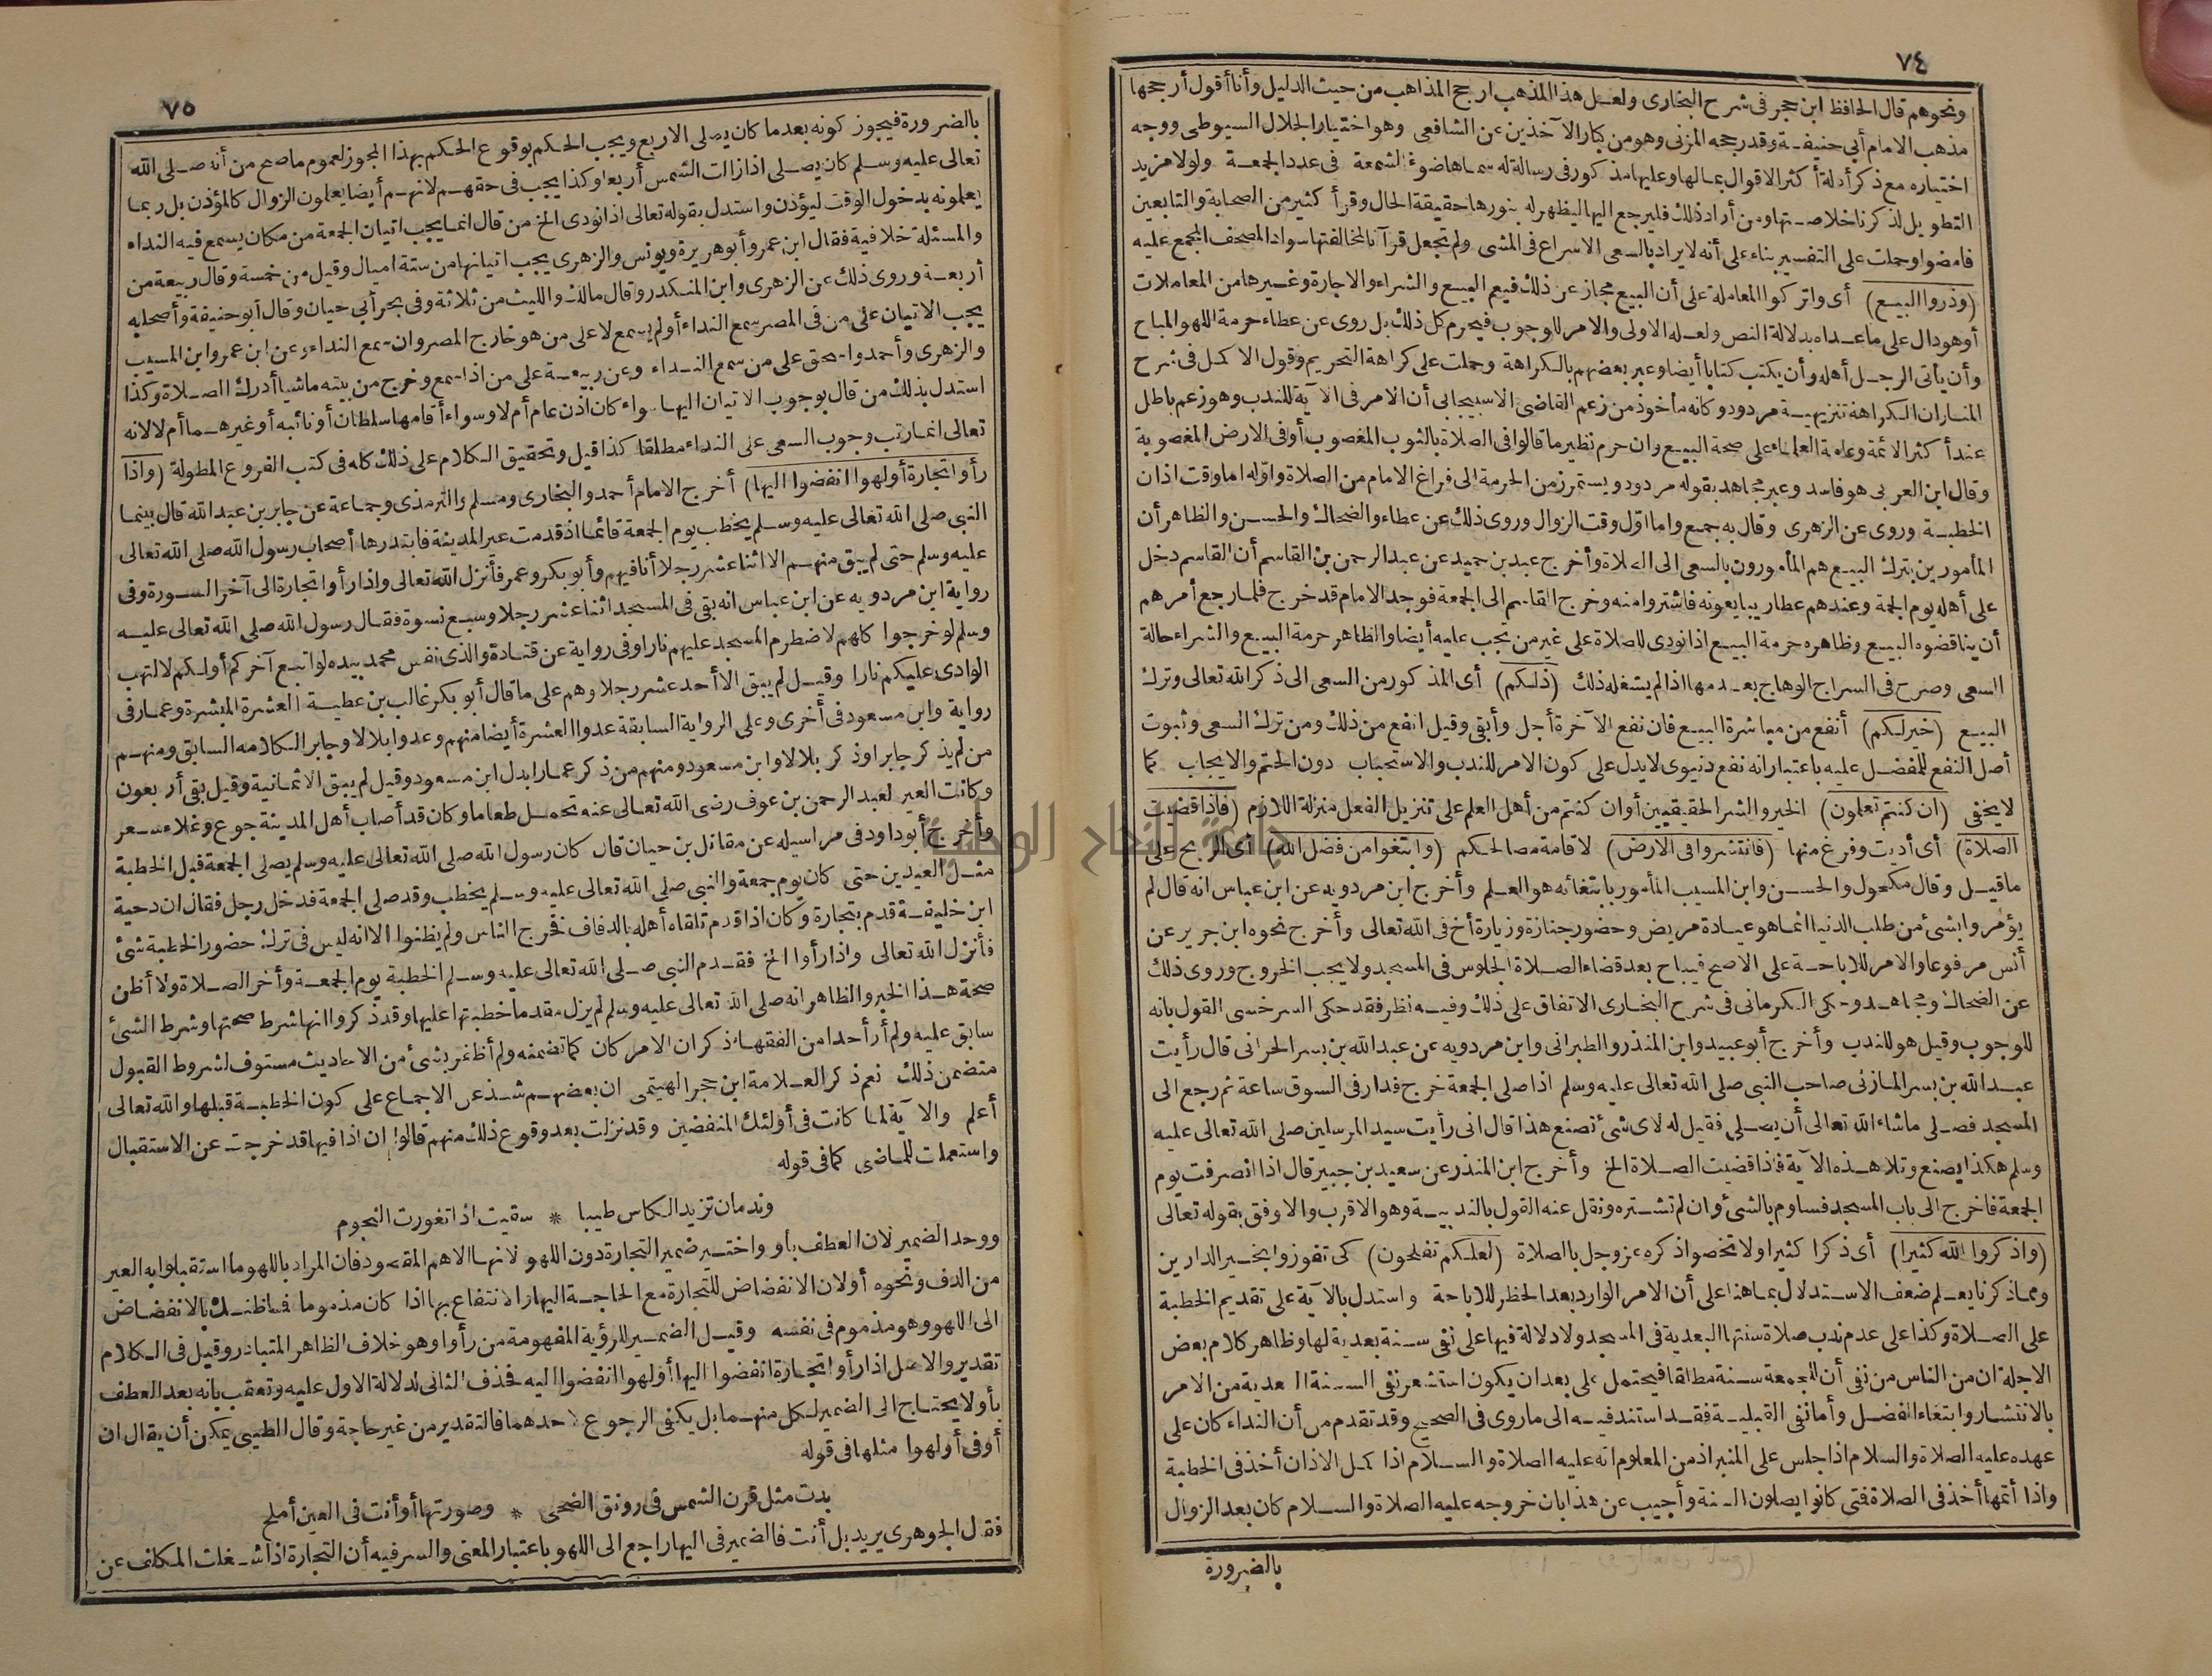 ٧٤
ونحوهم قال الحافظ ابن حجر فى شرح البخارى ولعل هذا المذهب ارجح المذاهب من حيث الدليل وأنا أقول أرجحها
مذهب الامام أبى حنيفة وقد رجحه المزنى وهو من كبار الآخذين عن الشافعى وهو اختيار الجلال السيوطى ووجه
اختياره مع ذكر أدلة أكثر الاقوال بمالها وعليها مذكور فى رسالة له سماها ضوء الشمعة فى عدد الجمعة ولولا مزيد
التطويل لذكرنا خلاصتها ومن أراد ذلك فليرجع اليها ليظهر له بنورها حقيقة الحال وقرأ كثير من الصحابة والتابعين
فامضوا وحملت على التفسير بناء على أنه لا يراد بالسعى الاسراع فى المشى ولم تجعل قرآنا لمخالفتها سواد المصحف المجمع عليه
(وذروا البيع) أى واتركوا المعاملة على أن البيع مجاز عن ذلك فيعم البيع والشراء والاجارة وغيرها من المعاملات
أو هو دال على ماعداه بدلالة النص ولعله الاولى والامر للوجوب فيحرم كل ذلك بل روى عن عطاء حرمة اللهو المباح
وأن يأتى الرجل أهله وأن يكتب كتابا أيضا وعبر بعضهم بالكراهة وحملت على كراهة التحريم وقول الاكمل فى شرح
المنار ان الكراهة تنزيهية مردود وكانه مأخوذ من زعم القاضى الاسبيجابى أن الامر فى الآية للندب وهو زعم باطل
عند أكثر الائمة وعامة العلماء على صحة البيع وان حرم نظير ما قالوا فى الصلاة بالثوب المغصوب أو فى الارض المغصوبة
وقال ابن العربى هو فاسد وعبر مجاهد بقوله مردود ويستمر زمن الحرمة الى فراغ الامام من الصلاة وأوله اما وقت اذان
الخطبة وروى عن الزهرى وقال به جمع واما اول وقت الزوال وروى ذلك عن عطاء والضحاك والحسن والظاهر أن
المأمورين بترك البيع هم المأمورون بالسعى الى الصلاة وأخرج عبد بن حميد عن عبد الرحمن بن القاسم أن القاسم دخل
على أهله يوم الجمعة وعندهم عطار يبايعونه فاشتروا منه وخرج القاسم الى الجمعة فوجد الامام قد خرج فلما رجع أمرهم
أن يناقضوه البيع وظاهره حرمة البيع اذا نودى للصلاة على غير من تجب عليه أيضا والظاهر حرمة البيع والشراء حالة
السعى وصرح فى السراج الوهاج بعدمها اذا لم يشغله ذلك (ذلكم) أى المذكور من السعى الى ذكر الله تعالى وترك
البيع (خير لكم) أنفع من مباشرة البيع فان نفع الآخرة أجل وأبقى وقيل انفع من ذلك ومن ترك السعى وثبوت
أصل النفع للمفضل عليه باعتبار انه نفع دنيوى لا يدل على كون الامر للندب والاستحباب دون الحتم والايجاب كما
لا يخفى (ان كنتم تعلمون) الخير والشر الحقيقيين أو ان كنتم من أهل العلم على تنزيل الفعل منزلة اللازم (فاذا قضيت
الصلاة) أى أديت وفرغ منها (فانتشروا فى الارض) لاقامة مصالحكم (وابتغوا من فضل الله) أى الربح على
ماقيل وقال مكحول والحسن وابن المسيب المأمور بابتغائه هو العلم وأخرج ابن مردويه عن ابن عباس انه قال لم
يؤمروا بشئ من طلب الدنيا انما هو عيادة مريض وحضور جنازة وزيارة أخ فى الله تعالى وأخرج نحوه ابن جرير عن
أنس مرفوعا والامر للاباحة على الاصح فيباح بعد قضاء الصلاة الجلوس فى المسجد ولا يجب الخروج وروى ذلك
عن الضحاك ومجاهد وحكى الكرمانى فى شرح البخارى الاتفاق على ذلك وفيه نظر فقد حكى السرخسى القول بانه
للوجوب وقيل هو للندب وأخرج أبو عبيد وابن المنذر والطبرانى وابن مردويه عن عبد الله بن بسر الحرانى قال رأيت
عبد الله بن بسر المازنى صاحب النبى صلى الله تعالى عليه وسلم اذا صلى الجمعة خرج فدار فى السوق ساعة ثم رجع الى
المسجد فصلى ماشاء الله تعالى أن يصلى فقيل له لاى شئ تصنع هذا قال انى رأيت سيد المرسلين صلى الله تعالى عليه
وسلم هكذا يصنع وتلا هذه الآية فاذا قضيت الصلاة الخ وأخرج ابن المنذر عن سعيد بن جبير قال اذا انصرفت يوم
الجمعة فاخرج الى باب المسجد فساوم بالشئ وان لم تشتره ونقل عنه القول بالندبية وهو الاقرب والاوفق بقوله تعالى
(واذكروا الله كثيرا) أى ذكرا كثيرا ولا تخصوا ذكره عز وجل بالصلاة (لعلكم تفلحون) كى تفوزوا بخير الدارين
ومما ذكرنا يعلم ضعف الاستدلال بما هنا على أن الامر الوارد بعد الحظر للاباحة واستدل بالآية على تقديم الخطبة
على الصلاة وكذا على عدم ندب صلاة سنتها البعدية فى المسجد ولا دلالة فيها على نفى سنة بعدية لها وظاهر كلام بعض
الاجلة ان من الناس من نفى أن للجمعة سنة مطلقا فيحتمل على بعد ان يكون استشعر نفى السنة البعدية من الامر
بالانتشار وابتغاء الفضل وأما نفى القبلية فقد استند فيه الى ما روى فى الصحيح وقد تقدم من أن النداء كان على
عهده عليه الصلاة والسلام اذا جلس على المنبر اذ من المعلوم انه عليه الصلاة والسلام اذا كمل الاذان أخذ فى الخطبة
واذا أتمها أخذ فى الصلاة فمتى كانوا يصلون السنة وأجيب عن هذا بان خروجه عليه الصلاة والسلام كان بعد الزوال
بالضرورة
٧٥
بالضرورة فيجوز كونه بعد ما كان يصلى الاربع ويجب الحكم بوقوع الحكم بهذا المجوز لعموم ماصح من أنه صلى الله
تعالى عليه وسلم كان يصلى اذا زالت الشمس أربعا وكذا يجب فى حقهم لانهم أيضا يعلمون الزوال كالمؤذن بل ربما
يعلمونه بدخول الوقت ليؤذن واستدل بقوله تعالى اذا نودى الخ من قال انما يجب اتيان الجمعة من مكان يسمع فيه النداء
والمسئلة خلافية فقال ابن عمر وأبو هريرة ويونس والزهرى يجب اتيانها من ستة اميال وقيل من خمسة وقال ربيعة من
أربعة وروى ذلك عن الزهرى وابن المنكدر وقال مالك والليث من ثلاثة وفى بحر أبى حيان وقال أبو حنيفة وأصحابه
يجب الاتيان على من فى المصر سمع النداء أو لم يسمع لا على من هو خارج المصر وان سمع النداء وعن ابن عمر وابن المسيب
والزهرى وأحمد واسحق على من سمع النداء وعن ربيعة على من اذا سمع وخرج من بيته ماشيا أدرك الصلاة وكذا
استدل بذلك من قال بوجوب الاتيان اليها سواء كان اذن عام أم لا وسواء أقامها سلطان أو نائبه أو غيرهما أم لا لانه
تعالى انما رتب وجوب السعى على النداء مطلقا كذا قيل وتحقيق الكلام على ذلك كله فى كتب الفروع المطولة (واذا
رأوا تجارة أو لهوا انفضوا اليها) أخرج الامام أحمد والبخارى ومسلم والترمذى وجماعة عن جابر بن عبد الله قال بينما
النبى صلى الله تعالى عليه وسلم يخطب يوم الجمعة قائما اذ قدمت عير المدينة فابتدرها أصحاب رسول الله صلى الله تعالى
عليه وسلم حتى لم يبق منهم الا اثنا عشر رجلا أنا فيهم وأبو بكر وعمر فأنزل الله تعالى واذا رأوا تجارة الى آخر السورة وفى
رواية ابن مردويه عن ابن عباس انه بقى فى المسجد اثنا عشر رجلا وسبع نسوة فقال رسول الله صلى الله تعالى عليه
وسلم لو خرجوا كلهم لاضطرم المسجد عليهم نارا وفى رواية عن قتادة والذى نفس محمد بيده لو اتبع آخركم أولكم لالتهب
الوادى عليكم نارا وقيل لم يبق الا أحد عشر رجلا وهم على ما قال أبو بكر غالب بن عطية العشرة المبشرة وعمار فى
رواية وابن مسعود فى أخرى وعلى الرواية السابقة عدوا العشرة أيضا منهم وعدوا بلالا وجابر الكلامه السابق ومنهم
من لم يذكر جابرا وذكر بلالا وابن مسعود ومنهم من ذكر عمارا بدل ابن مسعود وقيل لم يبق الا ثمانية وقيل بقى أربعون
وكانت العير لعبد الرحمن بن عوف رضى الله تعالى عنه تحمل طعاما وكان قد أصاب أهل المدينة جوع وغلاء سعر
وأخرج أبو داود فى مراسيله عن مقاتل بن حيان قال كان رسول الله صلى الله تعالى عليه وسلم يصلى الجمعة قبل الخطبة
مثل العيدين حتى كان يوم جمعة والنبى صلى الله تعالى عليه وسلم يخطب وقد صلى الجمعة فدخل رجل فقال ان دحية
ابن خليفة قدم بتجارة وكان اذا قدم تلقاه أهله بالدفاف فخرج الناس ولم يظنوا الا انه ليس فى ترك حضور الخطبة شئ
فأنزل الله تعالى واذا رأوا الخ فقدم النبى صلى الله تعالى عليه وسلم الخطبة يوم الجمعة وأخر الصلاة ولا أظن
صحة هذا الخبر والظاهر انه صلى الله تعالى عليه وسلم لم يزل مقدما خطبتها عليها وقد ذكروا انها شرط صحتها وشرط الشئ
سابق عليه ولم أر أحدا من الفقهاء ذكر ان الامر كان كما تضمنه ولم أظفر بشئ من الاحاديث مستوف لشروط القبول
متضمن ذلك نعم ذكر العلامة ابن حجر الهيتمى ان بعضهم شذ عن الاجماع على كون الخطبة قبلها والله تعالى
أعلم والآية لما كانت فى أولئك المنفضين وقد نزلت بعد وقوع ذلك منهم قالوا ان اذا فيها قد خرجت عن الاستقبال
واستعملت للماضى كما فى قوله
وندمان تزيد الكاس طيبا * سقيت اذا تغورت النجوم
ووحد الضمير لان العطف بأو واختير ضمير التجارة دون اللهو لانها الاهم المقصود فان المراد باللهو ما استقبلوا به العير
من الدف ونحوه أو لان الانفضاض للتجارة مع الحاجة اليها والانتفاع بها اذا كان مذموما فما ظنك بالانفضاض
الى اللهو وهو مذموم فى نفسه وقيل الضمير للرؤية المفهومة من رأوا وهو خلاف الظاهر المتبادر وقيل فى الكلام
تقدير والاصل اذا رأوا تجارة انفضوا اليها أو لهوا انفضوا اليه فحذف الثانى لدلالة الاول عليه وتعقب بانه بعد العطف
بأو لا يحتاج الى الضمير لكل منهما بل يكفى الرجوع لاحدهما فالتقدير من غير حاجة وقال الطيبى يمكن أن يقال ان
أو فى أو لهوا مثلها فى قوله
بدت مثل قرن الشمس فى رونق الضحى * وصورتها أو أنت فى العين أملح
فقال الجوهرى يريد بل أنت فالضمير فى اليها راجع الى اللهو باعتبار المعنى والسر فيه أن التجارة اذا شغلت المكلف عن
جامعة النجاح الوطنية